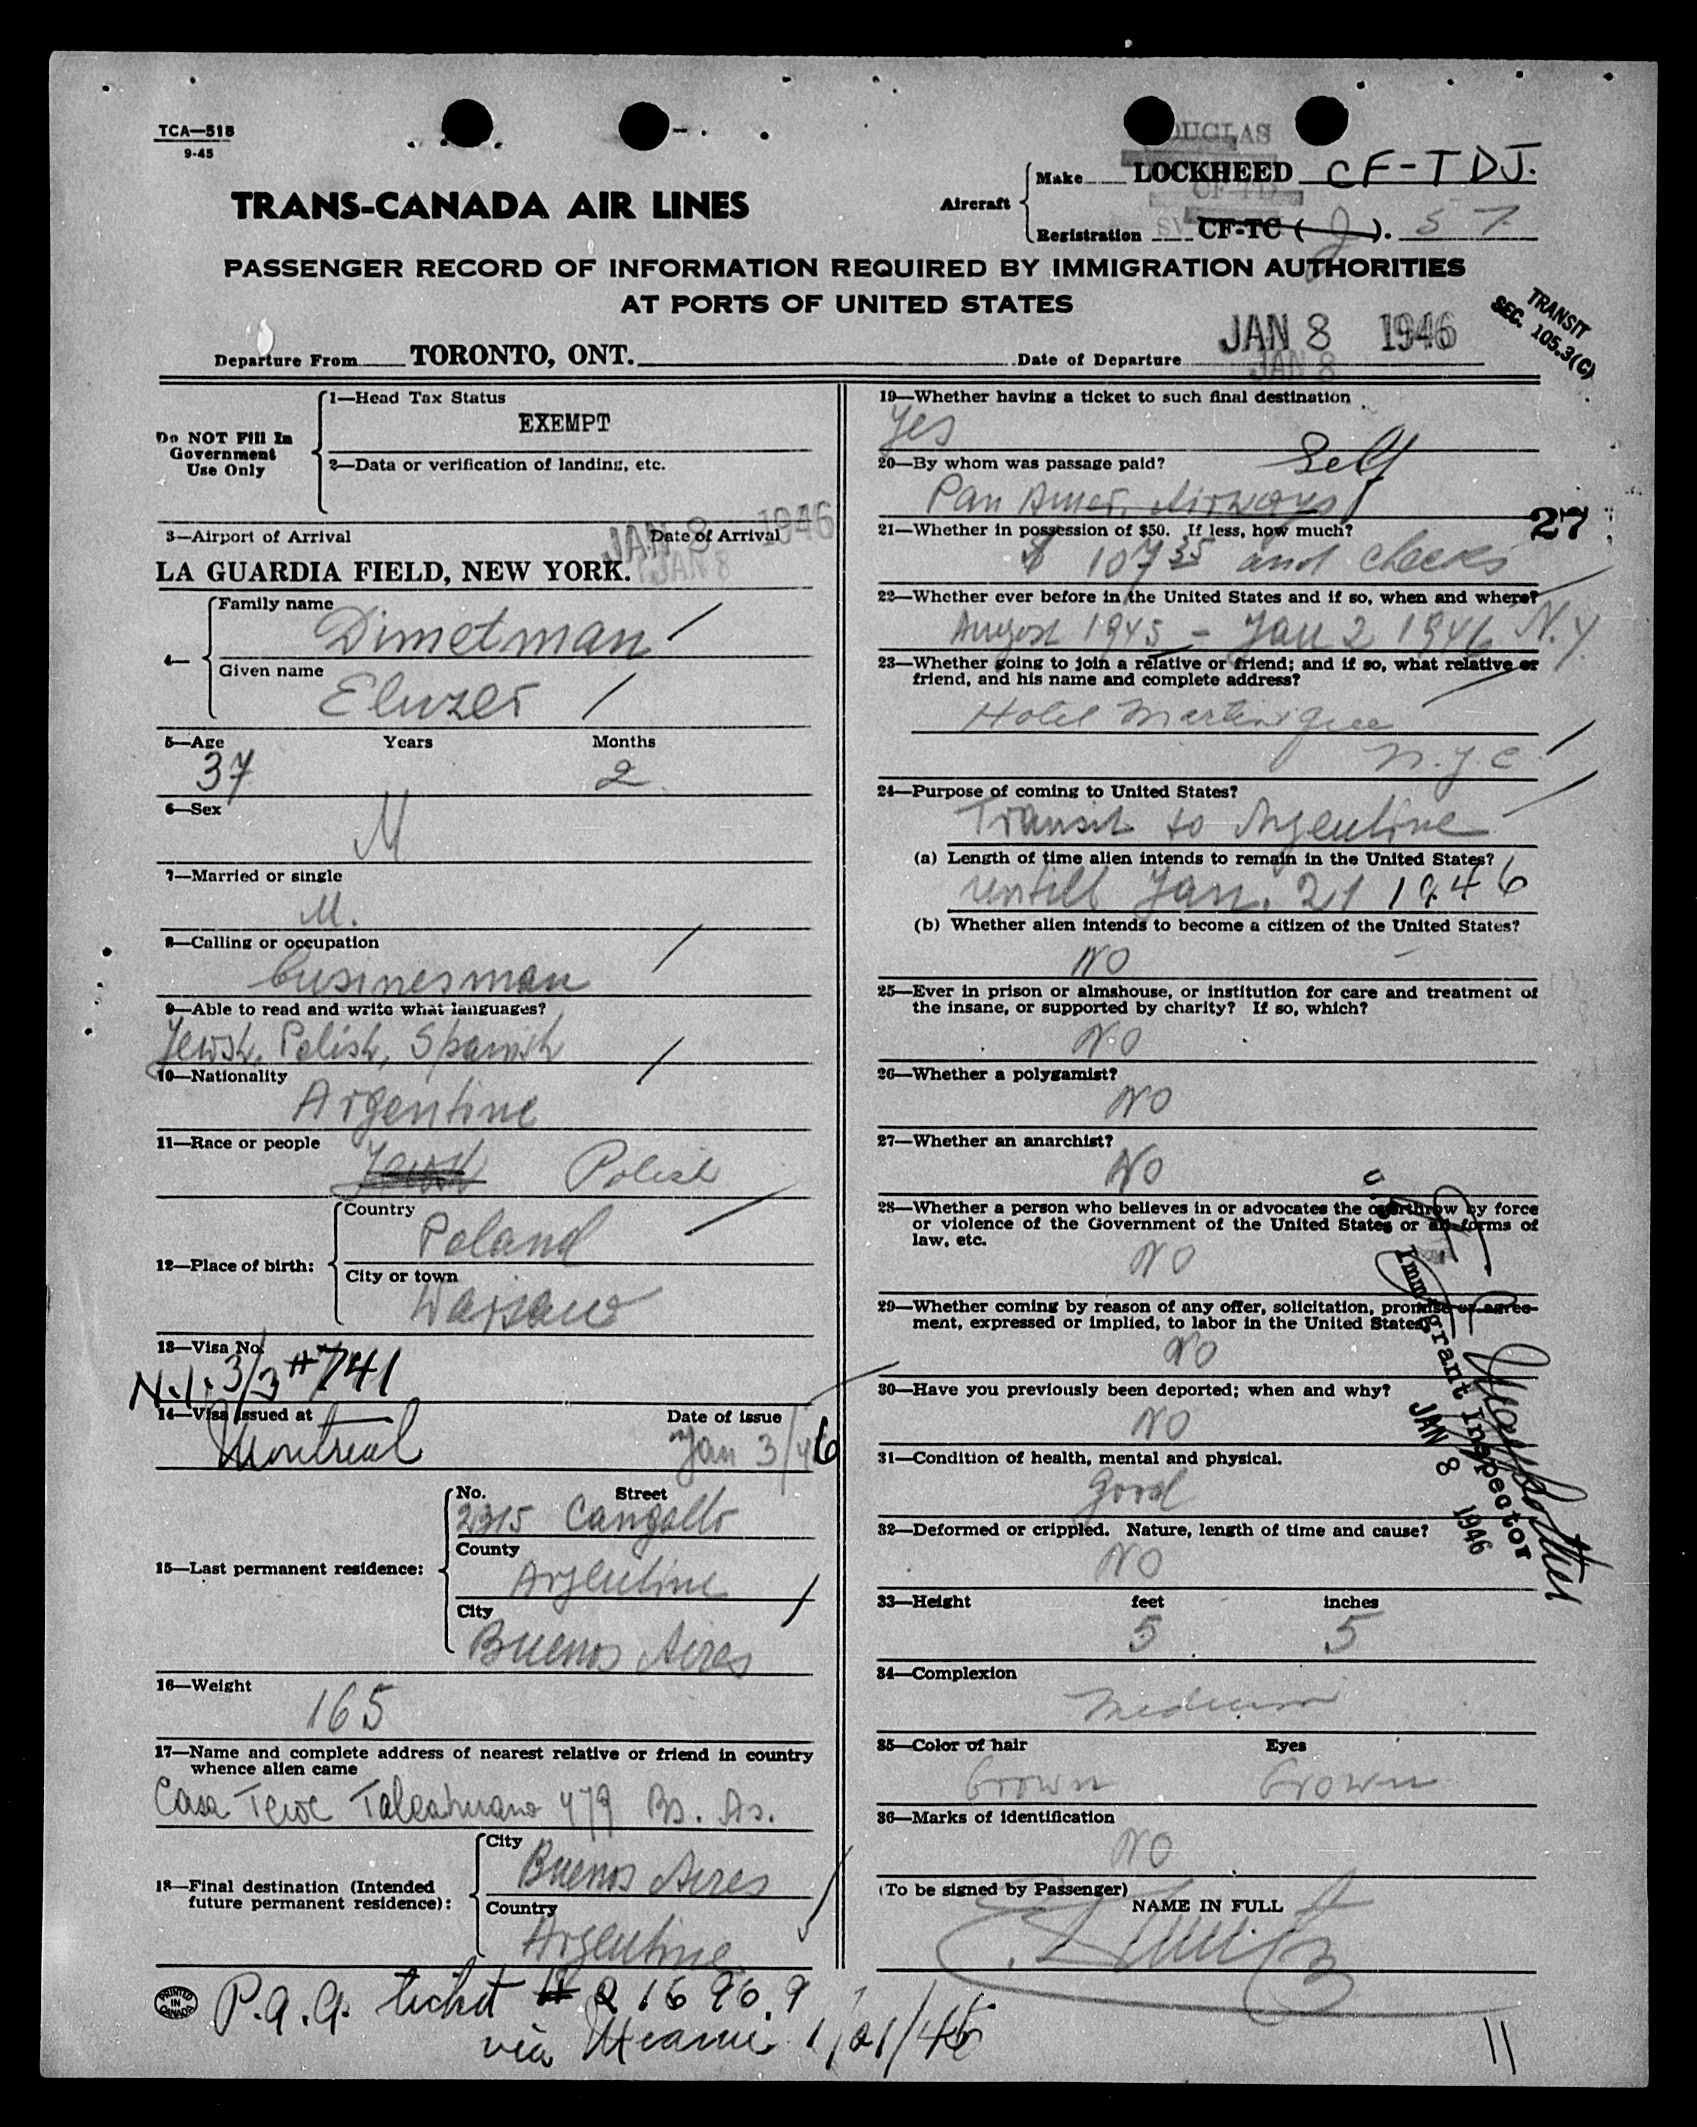 TCA—518
9-45
DOUGLAS
Aircraft
Make LOCKHEED CF-TDJ.
CF-TD
Registration CF-TC ( J ). 57
TRANS-CANADA AIR LINES
PASSENGER RECORD OF INFORMATION REQUIRED BY IMMIGRATION AUTHORITIES
AT PORTS OF UNITED STATES
TRANSIT
SEC. 105.3(C)
Departure From TORONTO, ONT. Date of Departure JAN 8 1946
JAN 8
Do NOT Fill In
Government
Use Only
1—Head Tax Status
EXEMPT
2—Data or verification of landing, etc.
3—Airport of Arrival Date of Arrival
JAN 8 1946
LA GUARDIA FIELD, NEW YORK. JAN 8
4—
Family name
Dimetman
Given name
Eluzer
5—Age Years Months
37 2
6—Sex
M
7—Married or single
M.
8—Calling or occupation
businesman
9—Able to read and write what languages?
Jewsh, Polish, Spanish
10—Nationality
Argentine
11—Race or people
Jewsh Polish
12—Place of birth:
Country
Poland
City or town
Warsaw
13—Visa No.
N.I. 3/3 #741
14—Visa issued at Date of issue
Montreal Jan 3/46
15—Last permanent residence:
No. Street
2315 Cangallo
County
Argentine
City
Buenos Aires
16—Weight
165
17—Name and complete address of nearest relative or friend in country
whence alien came
Casa Talcahuano 479 Bs. As.
18—Final destination (Intended
future permanent residence):
City
Buenos Aires
Country
Argentine
19—Whether having a ticket to such final destination
Yes
20—By whom was passage paid?
Self
Pan Amer. Airways
21—Whether in possession of $50. If less, how much?
27
$ 107 35 and checks
22—Whether ever before in the United States and if so, when and where?
August 1945 - Jan 2 1946 N.Y.
23—Whether going to join a relative or friend; and if so, what relative or
friend, and his name and complete address?
Hotel Martinique
N.Y.C.
24—Purpose of coming to United States?
Transit to Argentine
(a) Length of time alien intends to remain in the United States?
untill Jan. 21 1946
(b) Whether alien intends to become a citizen of the United States?
NO
25—Ever in prison or almshouse, or institution for care and treatment of
the insane, or supported by charity? If so, which?
NO
26—Whether a polygamist?
NO
27—Whether an anarchist?
NO
28—Whether a person who believes in or advocates the overthrow by force
or violence of the Government of the United States or all forms of
law, etc.
NO
29—Whether coming by reason of any offer, solicitation, promise or agree-
ment, expressed or implied, to labor in the United States?
NO
30—Have you previously been deported; when and why?
NO
31—Condition of health, mental and physical.
Good
32—Deformed or crippled. Nature, length of time and cause?
NO
U.S. Immigrant Inspector
JAN 8 1946
33—Height feet inches
5 5
34—Complexion
Medium
35—Color of hair Eyes
brown brown
36—Marks of identification
NO
(To be signed by Passenger)
NAME IN FULL
PRINTED
IN
CANADA
P.A.A. ticket # 216 96.9
via Miami 1/21/46
11